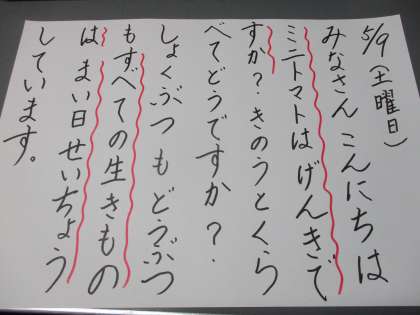 5/9(土曜日)
みなさん こんにちは
ミニトマトはげんきで
すか?きのうとくら
べてどうですか?
しょくぶつもどうぶつ
もすべての生きもの
は まい日せいちょう
しています。